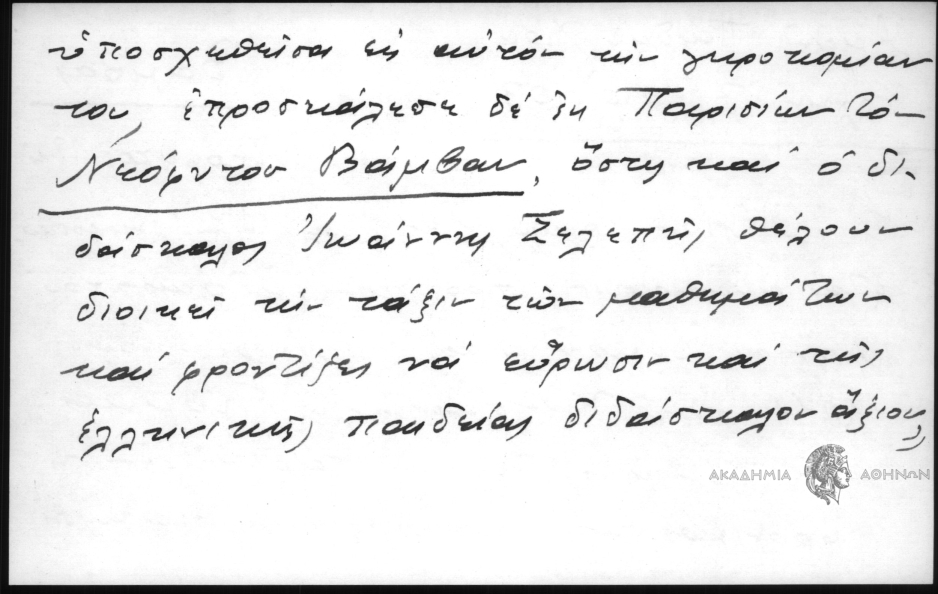 ὑποσχεθεῖσα εἰς αὐτὸν τὴν γηροκομίαν
του, ἐπροσκάλεσε δὲ ἐκ Παρισίων τὸν
Νεόφυτον Βάμβαν, ὅστις καὶ ὁ δι-
δάσκαλος Ἰωάννης Σελεπῆς θέλουν
διοικεῖ τὴν τάξιν τῶν μαθημάτων
καὶ φροντίζει νὰ εὕρωσιν καὶ τῆς
ἑλληνικῆς παιδείας διδάσκαλον ἄξιον,
ΑΚΑΔΗΜΙΑ ΑΘΗΝΩΝ